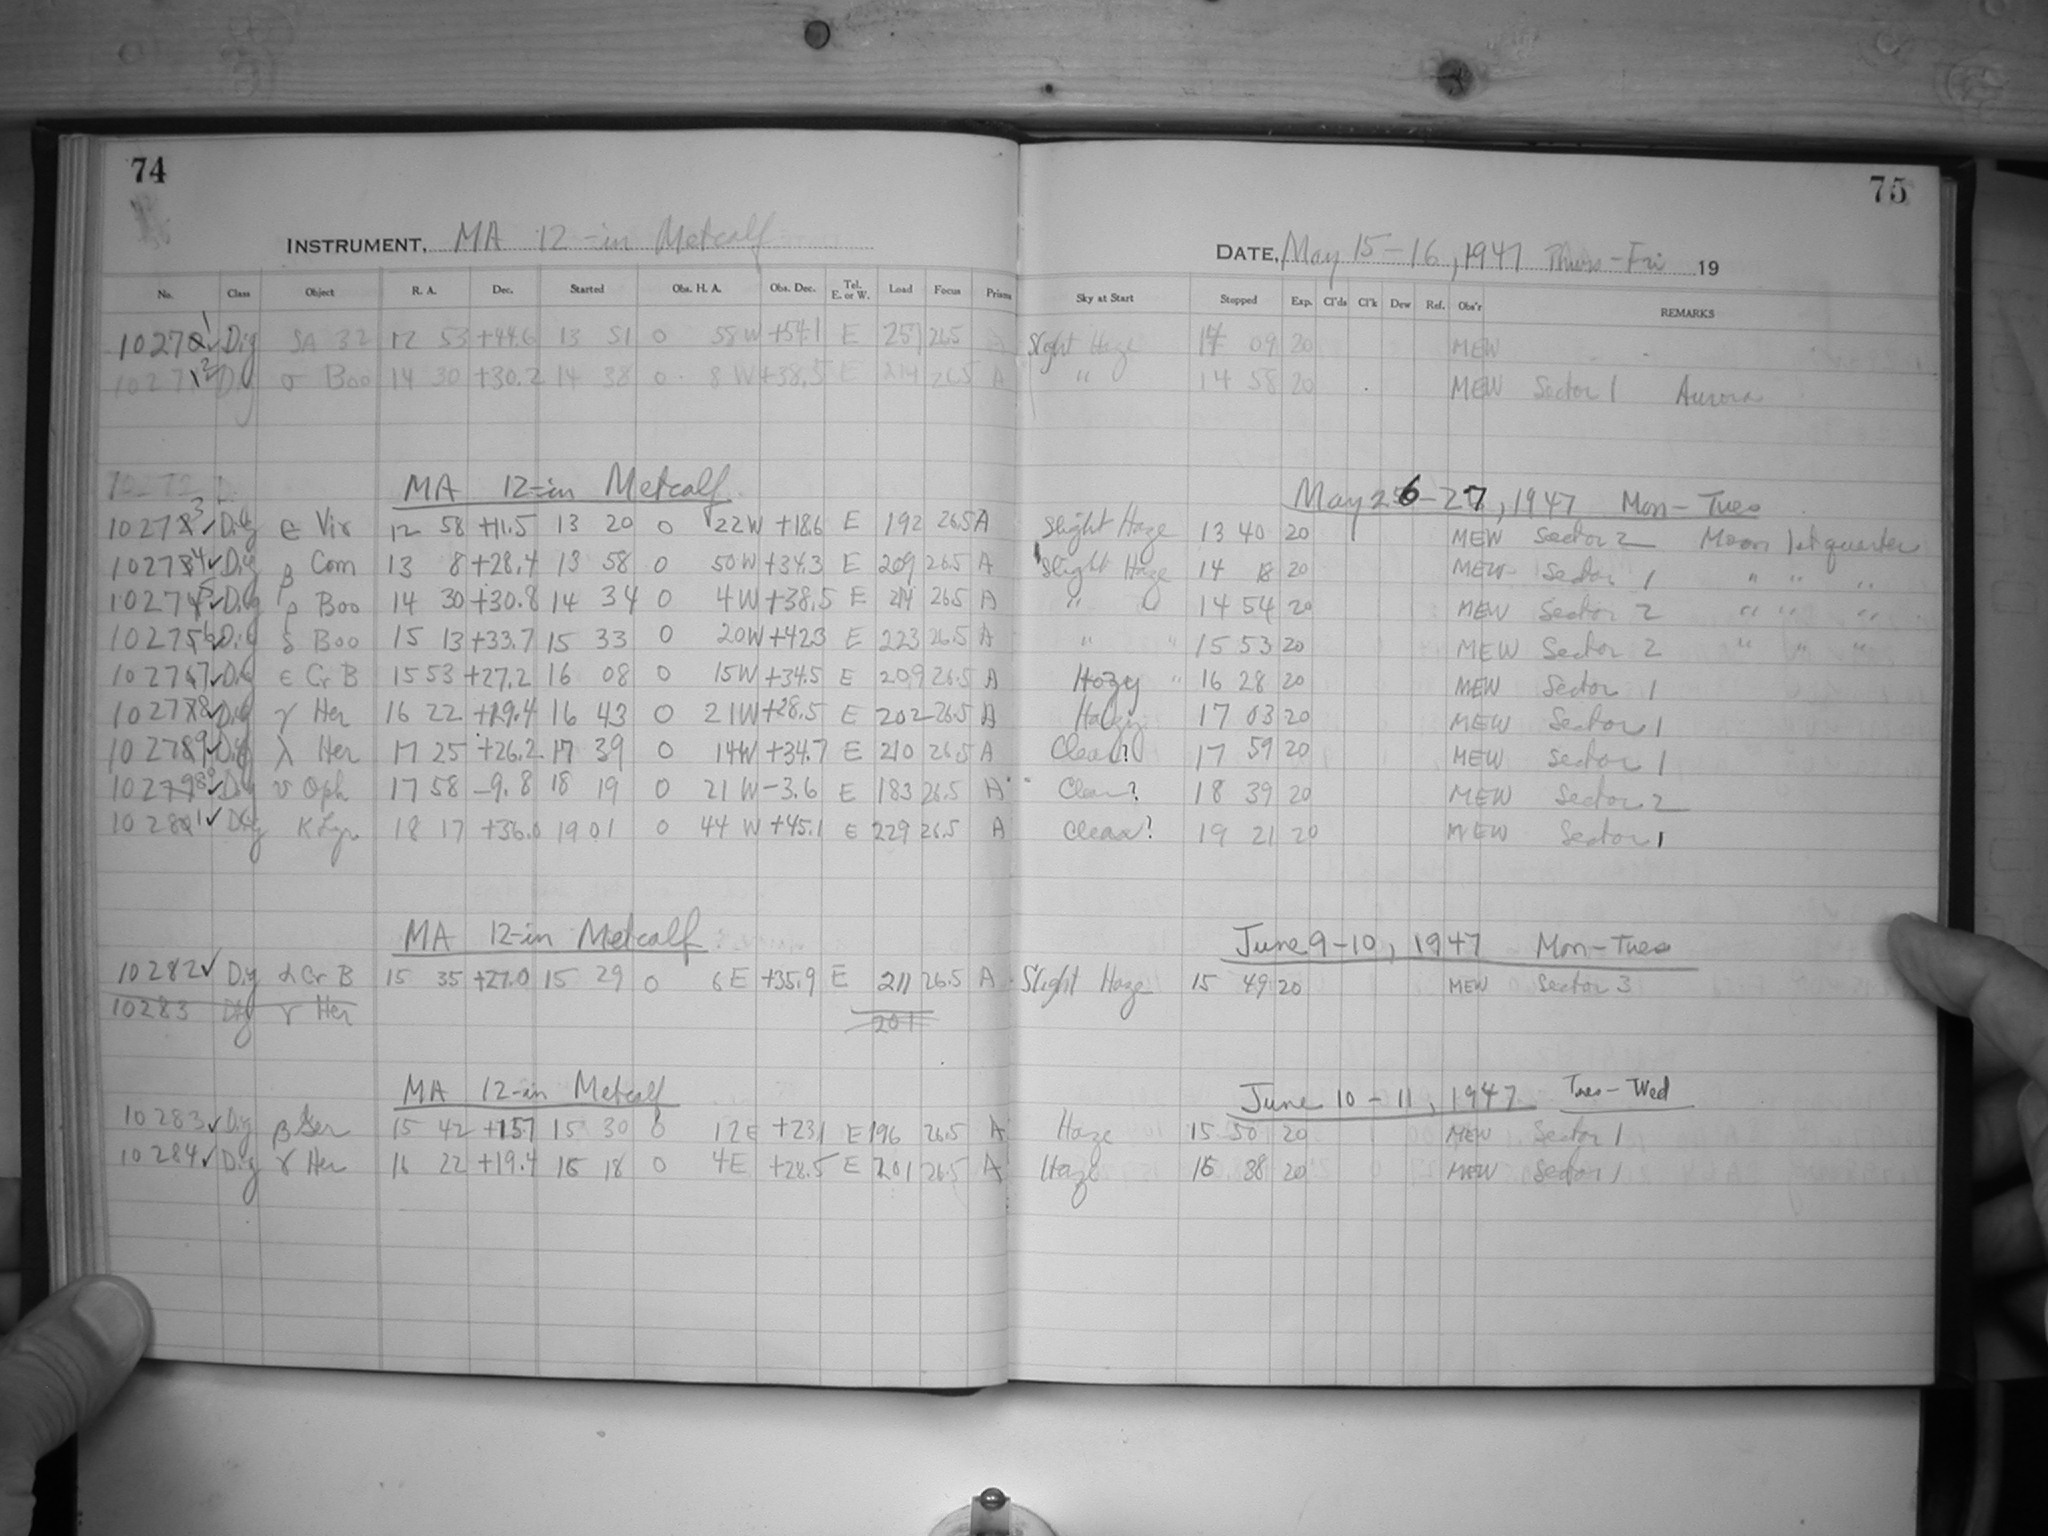 74
75
INSTRUMENT, MA 12-in Metcalf
DATE, May 15-16, 1947 Thurs-Fri 19
No. Class Object R. A. Dec. Started Obs. H. A. Obs. Dec. Tel. E. or W. Load Focus Prisms Sky at Start Stopped Exp. Cl'ds Cl'k Dew Ref. Obs'r REMARKS
10271 ✓ Dig SA 32 12 53 +44.6 13 51 0 58 W +54.1 E 257 26.5 Slight Haze 14 09 20 MEW
10272 Dig σ Boo 14 30 +30.2 14 38 0 8 W +38.5 E 214 26.5 A " 14 58 20 MEW Sector 1 Aurora
10272 D
MA 12-in Metcalf May 26-27, 1947 Mon-Tues
10273 ✓ Dig ε Vir 12 58 +11.5 13 20 0 22 W +18.6 E 192 26.5 A Slight Haze 13 40 20 MEW Sector 2 Moon 1st quarter
10274 ✓ Dig β Com 13 8 +28.4 13 58 0 50 W +34.3 E 209 26.5 A Slight Haze 14 18 20 MEW Sector 1 " " "
10275 ✓ Dig ρ Boo 14 30 +30.8 14 34 0 4 W +38.5 E 214 26.5 A " " 14 54 20 MEW Sector 2 " " "
10276 ✓ Dig δ Boo 15 13 +33.7 15 33 0 20 W +42.3 E 223 26.5 A " " 15 53 20 MEW Sector 2 " " "
10277 ✓ Dig ε Cr B 15 53 +27.2 16 08 0 15 W +34.5 E 209 26.5 A Hazy " 16 28 20 MEW Sector 1
10278 ✓ Dig γ Her 16 22 +19.4 16 43 0 21 W +28.5 E 202 26.5 A Hazy 17 03 20 MEW Sector 1
10279 ✓ Dig λ Her 17 25 +26.2 17 39 0 14 W +34.7 E 210 26.5 A Clear? 17 59 20 MEW Sector 1
10280 ✓ Dig ν Oph 17 58 -9.8 18 19 0 21 W -3.6 E 183 26.5 A " " Clear? 18 39 20 MEW Sector 2
10281 ✓ Dig κ Lyr 18 17 +36.0 19 01 0 44 W +45.1 E 229 26.5 A Clear? 19 21 20 MEW Sector 1
MA 12-in Metcalf June 9-10, 1947 Mon-Tues
10282 ✓ Dig α Cr B 15 35 +27.0 15 29 0 6 E +35.9 E 211 26.5 A Slight Haze 15 49 20 MEW Sector 3
10283 Dig γ Her 201
MA 12-in Metcalf June 10-11, 1947 Tues-Wed
10283 ✓ Dig β Ser 15 42 +15.7 15 30 0 12 E +23.1 E 196 26.5 A Haze 15 50 20 MEW Sector 1
10284 ✓ Dig γ Her 16 22 +19.4 16 18 0 4 E +28.5 E 201 26.5 A Haze 16 38 20 MEW Sector 1